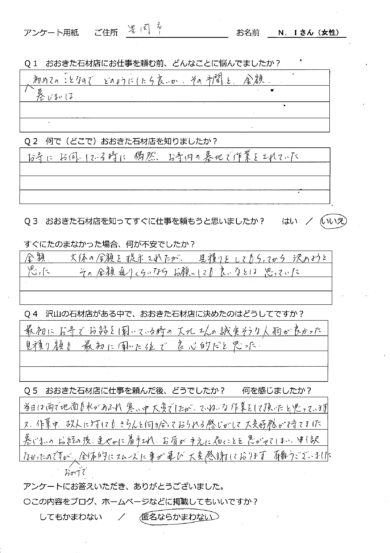 アンケート用紙　ご住所　豊岡市　お名前　N. Iさん(女性)
Q1　おおきた石材店にお仕事を頼む前、どんなことに悩んでましたか？
初めてのことなので　どのようにしたら良いか、その手間と、金額
墓じまいは
Q2　何で（どこで）おおきた石材店を知りましたか？
お寺にお伺いしている時に　偶然、お寺内の墓地で作業をされていた
Q3　おおきた石材店を知ってすぐに仕事を頼もうと思いましたか？　はい　／　いいえ
すぐにたのまなかった場合、何が不安でしたか？
金額　大体の金額を提示されたが、見積りをしてもらってから　決めようと
思った　その金額通りくらいなら　お願いしても良いなとは　思っていた
Q4　沢山の石材店がある中で、おおきた石材店に決めたのはどうしてですか？
最初にお寺でお話を聞いている時の　大北さんの誠実そうな人柄が良かった
見積り額も　最初に聞いた位で　良心的だと思った
Q5　おおきた石材店に仕事を頼んだ後、どうでしたか？　何を感じましたか？
当日は雨で地面も水があふれ　寒い中大変でしたが、ていねいな作業をして頂いたと思っています
又、作業中　故人に対しても　きちんと向き合っておられる感じがして大変好感が持てました
墓じまいのお話の後、
なかったのですが、　全体的にスムーズに事が運び　大変感謝しております　有難うございました
おかげで
アンケートにお答えいただき、ありがとうございました。
〇この内容をブログ、ホームページなどに掲載してもいいですか？
してもかまわない　／　匿名ならかまわない